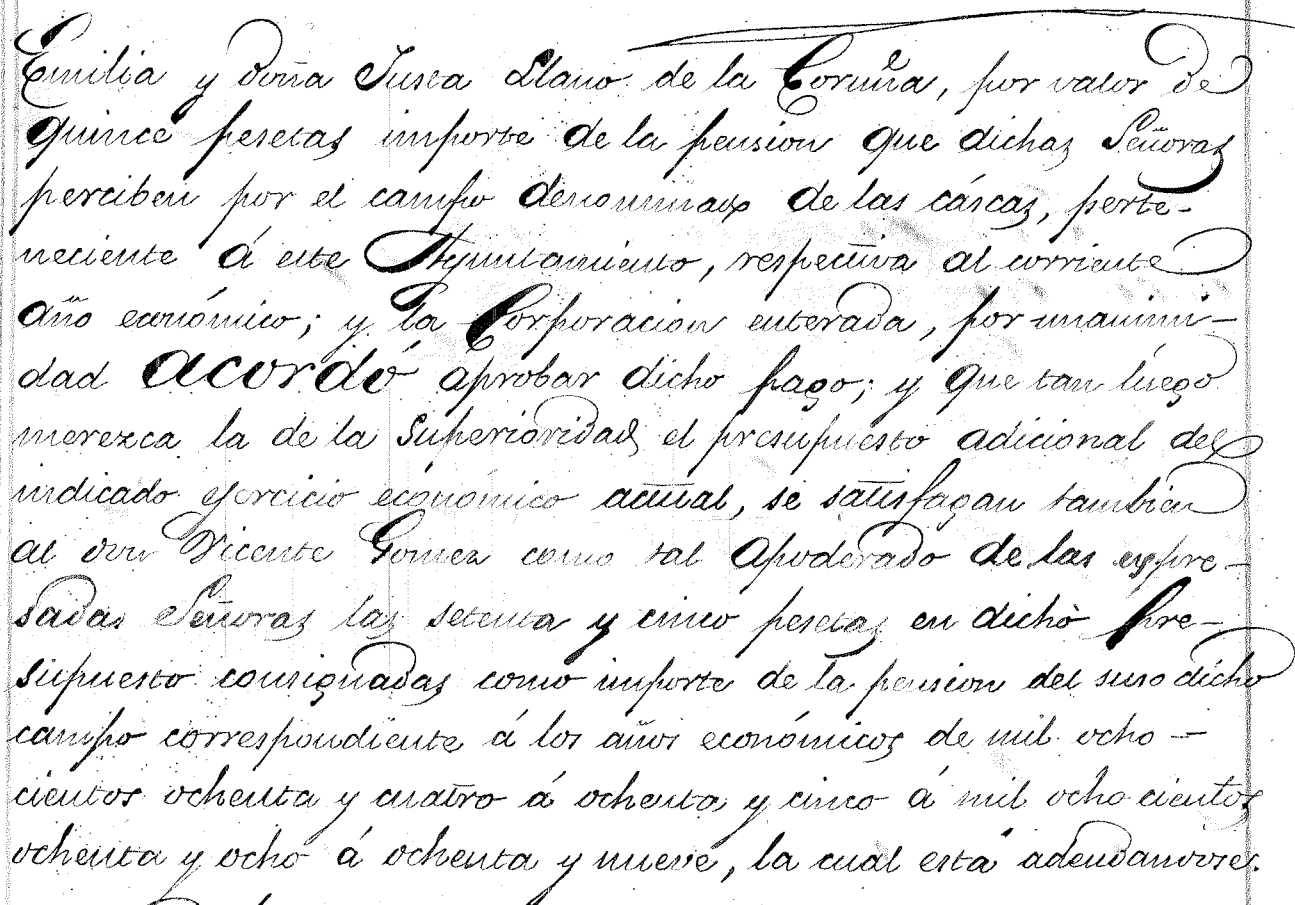 Emilia y doña Justa Llano de la Coruña, por valor de
quince pesetas importe de la pension que dichas Señoras
perciben por el campo denominado de las cáscas, perte-
neciente á este Ayuntamiento, respectiva al corriente
año económico; y la Corporacion enterada, por unanimi-
dad acordó aprobar dicho pago; y que tan luego
merezca la de la Superioridad el presupuesto adicional del
indicado ejercicio económico actual, se satisfagan tambien
al don Vicente Gomez como tal apoderado de las expre-
sadas Señoras las setenta y cinco pesetas en dicho pre-
supuesto consignadas como importe de la pension del suso dicho
campo correspondiente á los años económicos de mil ocho-
cientos ochenta y cuatro á ochenta y cinco á mil ocho cientos
ochenta y ocho á ochenta y nueve, la cual está adeudandoses.